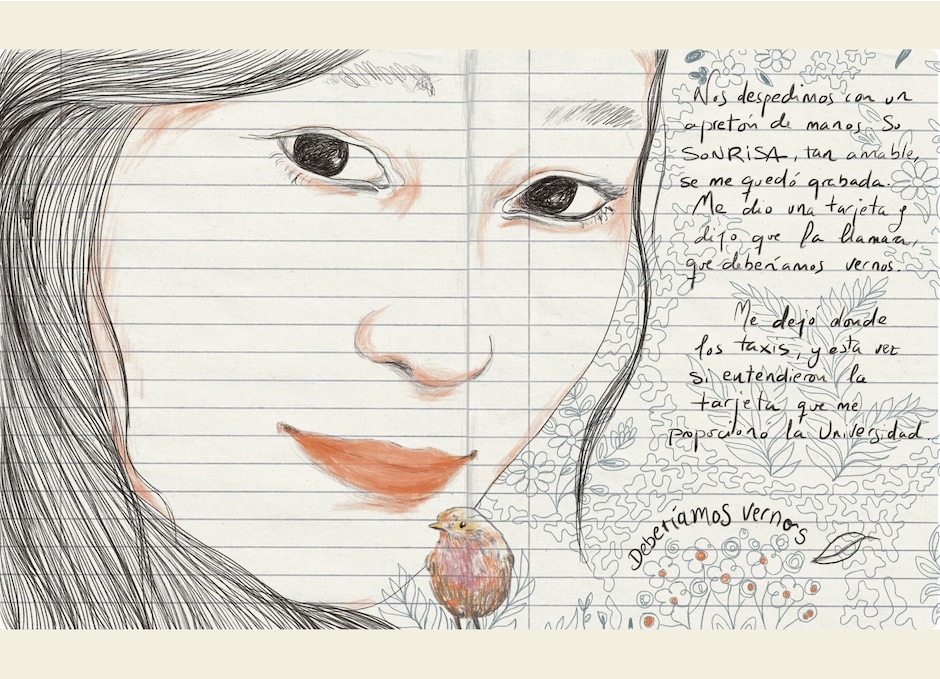 Nos despedimos con un
apretón de manos. Su
SONRISA, tan amable,
se me quedó grabada.
Me dio una tarjeta y
dijo que la llamara,
que deberíamos vernos.
Me dejo donde
los taxis, y esta vez
si entendieron la
tarjeta que me
proporciono la Universidad.
Deberíamos vernos